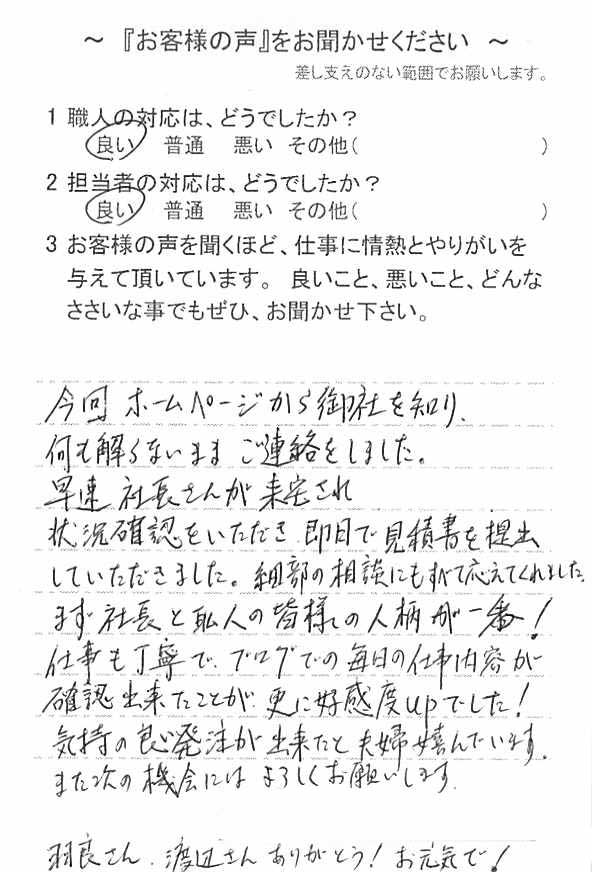 ～ 『お客様の声』をお聞かせください ～
差し支えのない範囲でお願いします。
1 職人の対応は、どうでしたか？
良い 普通 悪い その他( )
2 担当者の対応は、どうでしたか？
良い 普通 悪い その他( )
3 お客様の声を聞くほど、仕事に情熱とやりがいを
与えて頂いています。 良いこと、悪いこと、どんな
ささいな事でもぜひ、お聞かせ下さい。
今回 ホームページから御社を知り、
何も解らないまま ご連絡をしました。
早速 社長さんが来宅され
状況確認をいただき 即日で見積書を提出
していただきました。細部の相談にもすべて応えてくれました。
まず 社長と職人の皆様の人柄が一番！
仕事も丁寧で、ブログでの毎日の仕事内容が
確認出来たことが、更に好感度upでした！
気持の良い発注が出来たと夫婦嬉んでいます。
また次の機会には よろしくお願いします。
羽良さん、渡辺さん ありがとう！ お元気で！